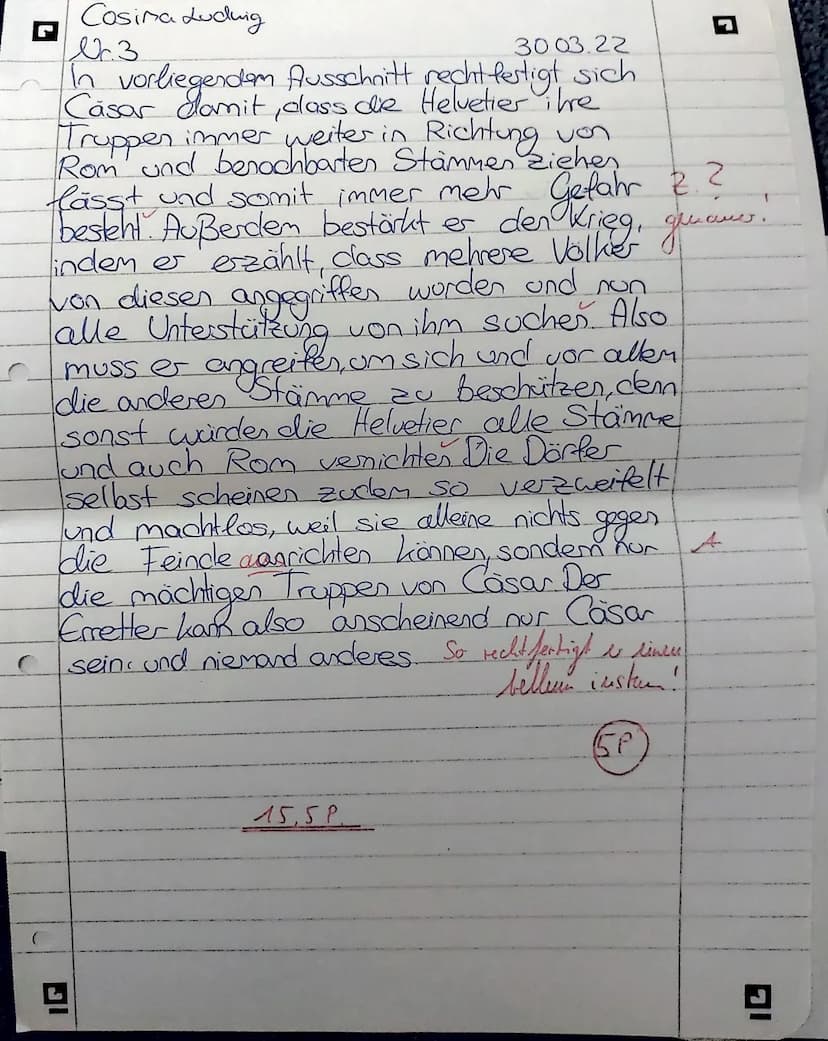 Cosima Ludwig
Nr. 3 30 03. 22
In vorliegendem Ausschnitt rechtfertigt sich
Cäsar damit, dass die Helvetier ihre
Truppen immer weiter in Richtung von
Rom und benachbarten Stämmen ziehen
lässt und somit immer mehr Gefahr Z. ?
besteht. Außerdem bestärkt er den Krieg, genauer!
indem er erzählt, dass mehrere Völker
von diesen angegriffen worden und nun
alle Unterstützung von ihm suchen. Also
muss er angreifen, um sich und vor allem
die anderen Stämme zu beschützen, denn
sonst würden die Helvetier alle Stämme
und auch Rom vernichten. Die Dörfer
selbst scheinen zudem so verzweifelt
und machtlos, weil sie alleine nichts gegen
die Feinde ausrichten können, sondern nur A
die mächtigen Truppen von Cäsar. Der
Erretter kann also anscheinend nur Cäsar
sein und niemand anderes. So rechtfertigt er einen
bellum iustum!
5P
15,5 P.